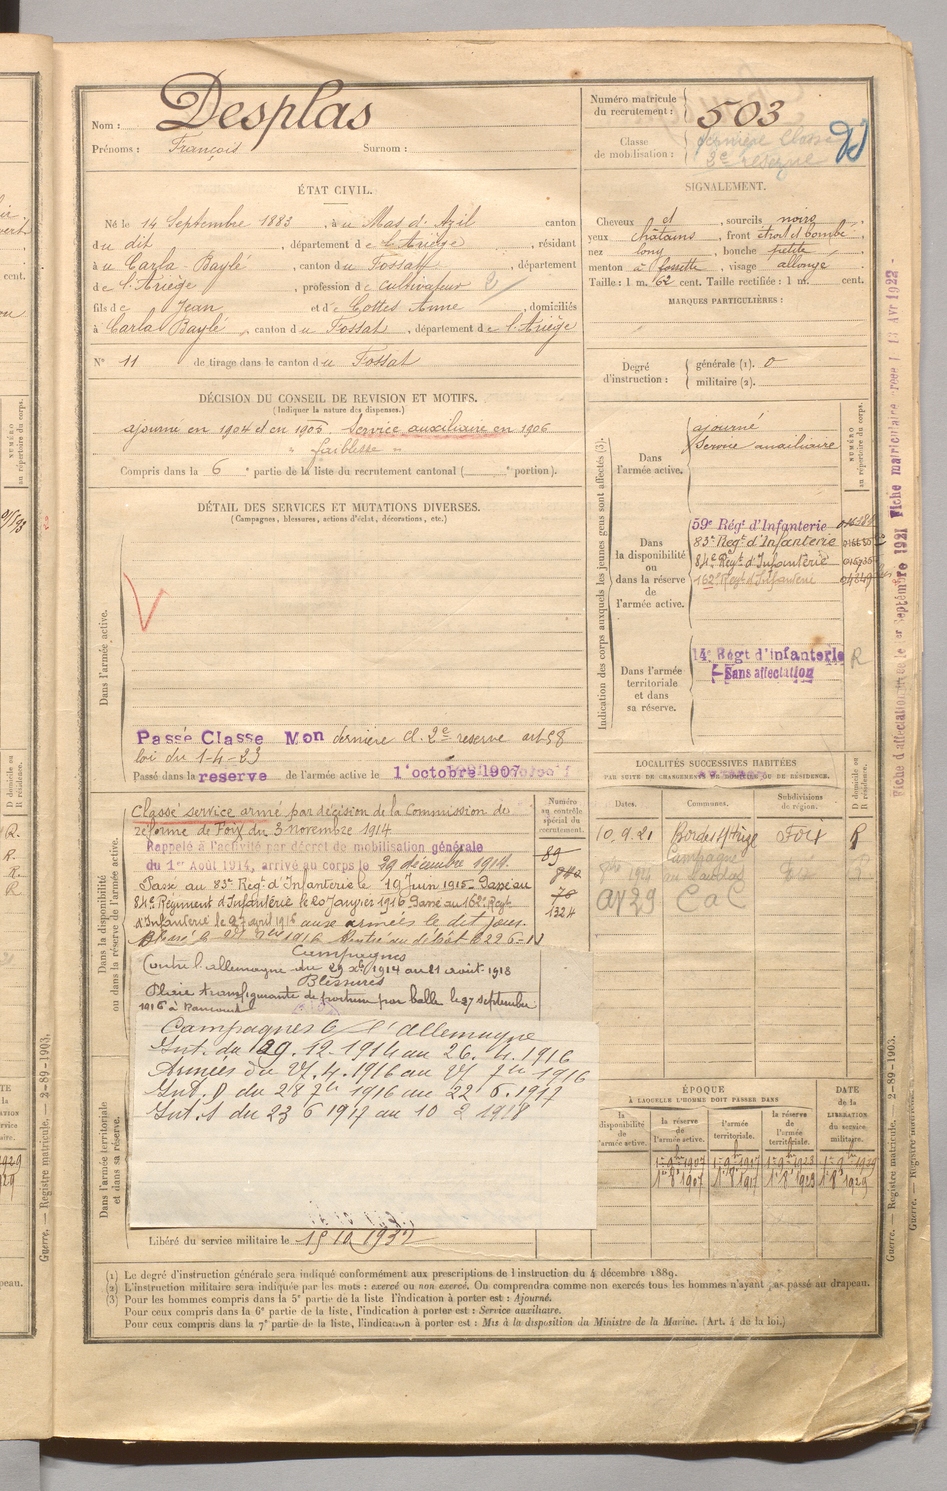 Nom : Desplas
Prénoms : François Surnom :
Numéro matricule du recrutement : 503
Classe de mobilisation : dernière Classe 2e réserve
ÉTAT CIVIL.
Né le 14 Septembre 1883, à u Mas d'Azil canton
du dit, département de l'Ariège, résidant
à u Carla-Baylé, canton du Fossat, département
de l'Ariège, profession de cultivateur
fils de Jean et de Gottes Anne, domiciliés
à Carla Baylé, canton du Fossat, département de l'Ariège
N° 11 de tirage dans le canton du Fossat
SIGNALEMENT.
Cheveux et, sourcils noirs
yeux châtains, front étroit et bombé
nez long, bouche petite
menton à fossette, visage allongé
Taille : 1 m. 62 cent. Taille rectifiée : 1 m. cent.
MARQUES PARTICULIÈRES :
Degré d'instruction : générale (1). 0
militaire (2).
DÉCISION DU CONSEIL DE REVISION ET MOTIFS.
(Indiquer la nature des dispenses.)
ajourné en 1904 et en 1905. Service auxiliaire en 1906
" faiblesse "
Compris dans la 6e partie de la liste du recrutement cantonal ( e portion).
DÉTAIL DES SERVICES ET MUTATIONS DIVERSES.
(Campagnes, blessures, actions d'éclat, décorations, etc.)
Dans l'armée active.
Passé Classe Mon dernière cl. 2e réserve art 58
loi du 1-4-23
Passé dans la réserve de l'armée active le 1er octobre 1907
Indication des corps auxquels les jeunes gens sont affectés (3).
NUMÉRO au répertoire du corps.
Dans l'armée active.
ajourné
Service auxiliaire
Dans la disponibilité ou dans la réserve de l'armée active.
59e Régt d'Infanterie
83e Régt d'Infanterie
84e Régt d'Infanterie
162e Régt d'Infanterie
Dans l'armée territoriale et dans sa réserve.
14e Régt d'infanterie R
Sans affectation
LOCALITÉS SUCCESSIVES HABITÉES
PAR SUITE DE CHANGEMENTS DE DOMICILE OU DE RÉSIDENCE.
Dates. Communes. Subdivisions de région. D domicile ou R résidence.
10.9.21 Foix R
Dans la disponibilité ou dans la réserve de l'armée active.
Numéro au contrôle spécial du recrutement.
Classé service armé par décision de la Commission de
réforme de Foix du 3 novembre 1914
Rappelé à l'activité par décret de mobilisation générale
du 1er Août 1914, arrivé au corps le 29 décembre 1914.
Passé au 83e Régt d'Infanterie le 19 Juin 1915. Passé au
84e Régiment d'Infanterie le 20 Janvier 1916 Passé au 162e Régt
d'Infanterie le 27 avril 1916 aux armées le dit jour.
89
78
1324
Campagnes
Contre l'allemagne du 29 Xbre 1914 au 21 août 1918
Blessures
Plaie transfixiante de poitrine par balle le 27 septembre
1916 à Rancourt
Campagnes C/ l'allemagne
Int. du 29.12.1914 au 26.4.1916
Armées du 27.4.1916 au 27 7bre 1916
Int. D du 28 7bre 1916 au 22 6.1917
Int. S du 23 6 1917 au 10 2 1918
Dans l'armée territoriale et dans sa réserve.
Libéré du service militaire le 15 10 1932
ÉPOQUE
À LAQUELLE L'HOMME DOIT PASSER DANS
DATE de la LIBÉRATION du service militaire.
la disponibilité de l'armée active.
la réserve de l'armée active.
l'armée territoriale.
la réserve de l'armée territoriale.
(1) Le degré d'instruction générale sera indiqué conformément aux prescriptions de l'instruction du 4 décembre 1889.
(2) L'instruction militaire sera indiquée par les mots : exercé ou non exercé. On comprendra comme non exercés tous les hommes n'ayant pas passé au drapeau.
(3) Pour les hommes compris dans la 5e partie de la liste l'indication à porter est : Ajourné.
Pour ceux compris dans la 6e partie de la liste, l'indication à porter est : Service auxiliaire.
Pour ceux compris dans la 7e partie de la liste, l'indication à porter est : Mis à la disposition du Ministre de la Marine. (Art. 4 de la loi.)
Guerre. — Registre matricule. — 2-89-1903.